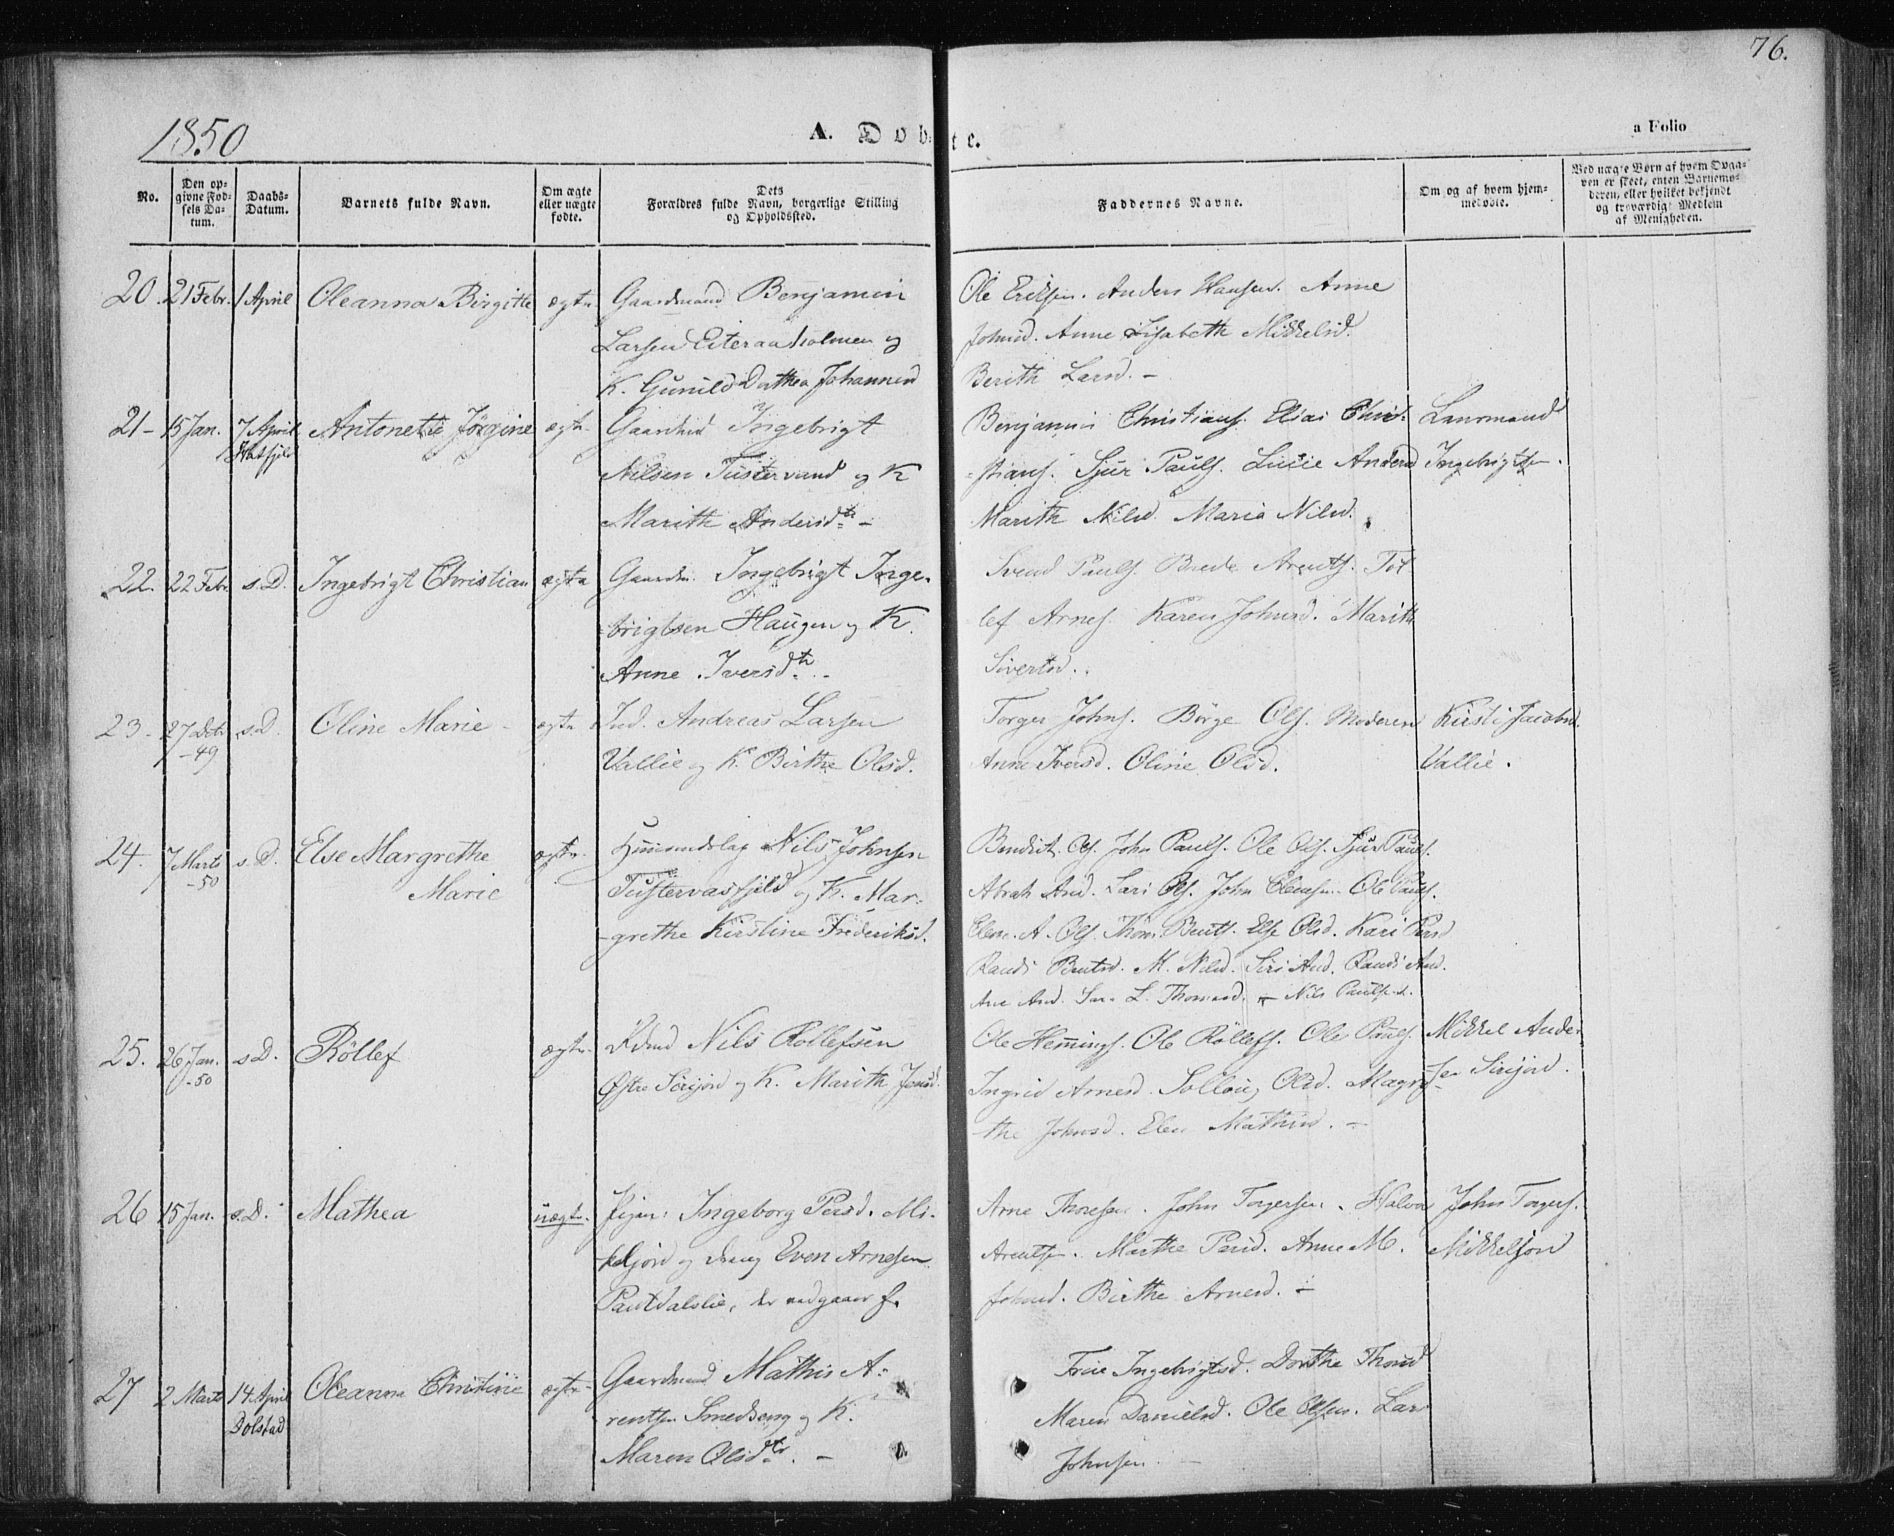 76.
1850
A. Døbte.
a Folio
No.
Den opgivne Fødsels Datum.
Daabs-Datum.
Barnets fulde Navn.
Om ægte eller uægte fødte.
Dets Forældres fulde Navn, borgerlige Stilling og Opholdssted.
Faddernes Navne.
Om og af hvem hjemmedøbt.
Ved uægte Børn af hvem Opgaven er skeet, enten Barnemoderen, eller hvilket bekjendt og troværdigt Medlem af Menigheden.
20. 21 Febr. 1 April Oleanna Birgitte ægte Gaardmand Benjamin
Larsen Eiteraaholmen og
K. Gunild Dorthea Johannesd
Ole Eriksen. Anders Hansen. Anne
Johnsd. Anne Lisabeth Mikkelsd.
Berith Larsd. –
21 – 15 Jan. 7 April Hatfjeld Antonette Jørgine ægte Gaardmd Ingebrigt
Nilsen Tustervand og K
Marith Andersdtr –
Benjamin Christians. Elias Chri-
stians. Sjur Pauls. Lucie Andersd
Marith Nilsd. Maria Nilsd.
Lensmand
Ingebrigtsen.
22. 22 Febr. s.D. Ingebrigt Christian ægte Gaardm. Ingebrigt Inge-
brigtsen Haugen og K.
Anne Iversdtr.
Svend Pauls. Arents. Tol
lef Arnes. Karen Johnsd. Marith
Sivertsd.
23 – 27 Dcbr -49 s.D. Oline Marie – ægte Ind. Andreas Larsen
Vallie og K. Birthe Olsd.
Torger Johns. Børge Ols. Moderen
Anne Iversd. Oline Olsd.
Kirsti Jacobsd.
Vallie.
24. 7 Marts -50 s.D. Else Margrethe
Marie ægte. Nils Johnsen
Tustervasfjeld og K. Mar-
grethe Kirstine Frederiksd.
Bendict Ols. John Pauls. Ole Ols. Sjur Pauls.
Ols. John Ole Pauls.
A. Ols. Thom. Bentt. Else Olsd. Kari
Randi Bentsd. M. Nilsd. Siri And. Randi And.
Ane And. L. Thomasd. Nils
25. 26 Jan. -50 s.D. Röllef ægte. Nils Rollefsen
Østre Sirijord og K. Marith Jonsd.
Ole Hemings. Ole Röllefs. Ole Pauls.
Ingrid Arnesd. Olsd. Magre
the Johnsd. Elen
Mikkel Ander
sen Sirijord.
26 15 Jan. s.D. Mathea uægte. Pigen: Ingeborg Persd. Mi-
keljord og dreng Even Arnesen
Pantdalslie, der vedgaaer f.
Arne Thoresen. John Torgersen. Halvor
Arentsen. Marthe Persd. Anne M.
Johnsd. Birthe Arnesd. –
John Torgers.
Mikkeljord
27 2 Marts 14 April Dolstad Oleanna Christine ægte – Gaardmand Mathis A-
rentsen Smedseng og K.
Maren Olsdtr. –
Ingebrigtsd. Dorthe Thorsd
Maren Danielsd. Ole Olsen. Lars
Johnsen. –